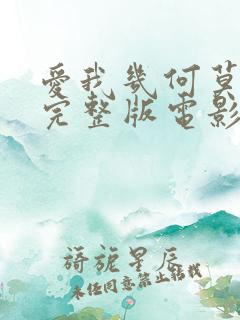 愛我幾何莫
完整版電影
旖旎星辰
未经同意禁止转载